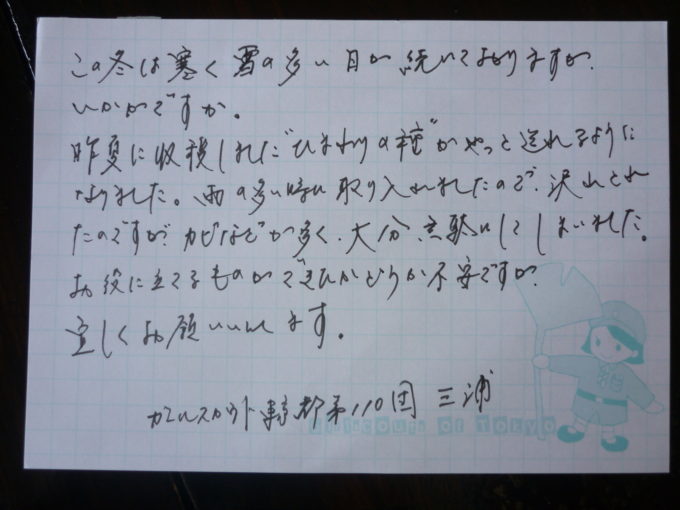 この冬は寒く雪の多い日が続いておりますが、
いかがですか。
昨夏に収穫しました"ひまわりの種"がやっと送れるように
なりました。雨の多い時に取り入れましたので、沢山とれ
たのですが、カビなどが多く、大分、無駄にしてしまいました。
お役に立てるものができたかどうか不安ですが、
宜しくお願いいたします。
ガールスカウト東京都第110団 三浦
Girl Scouts of Tokyo